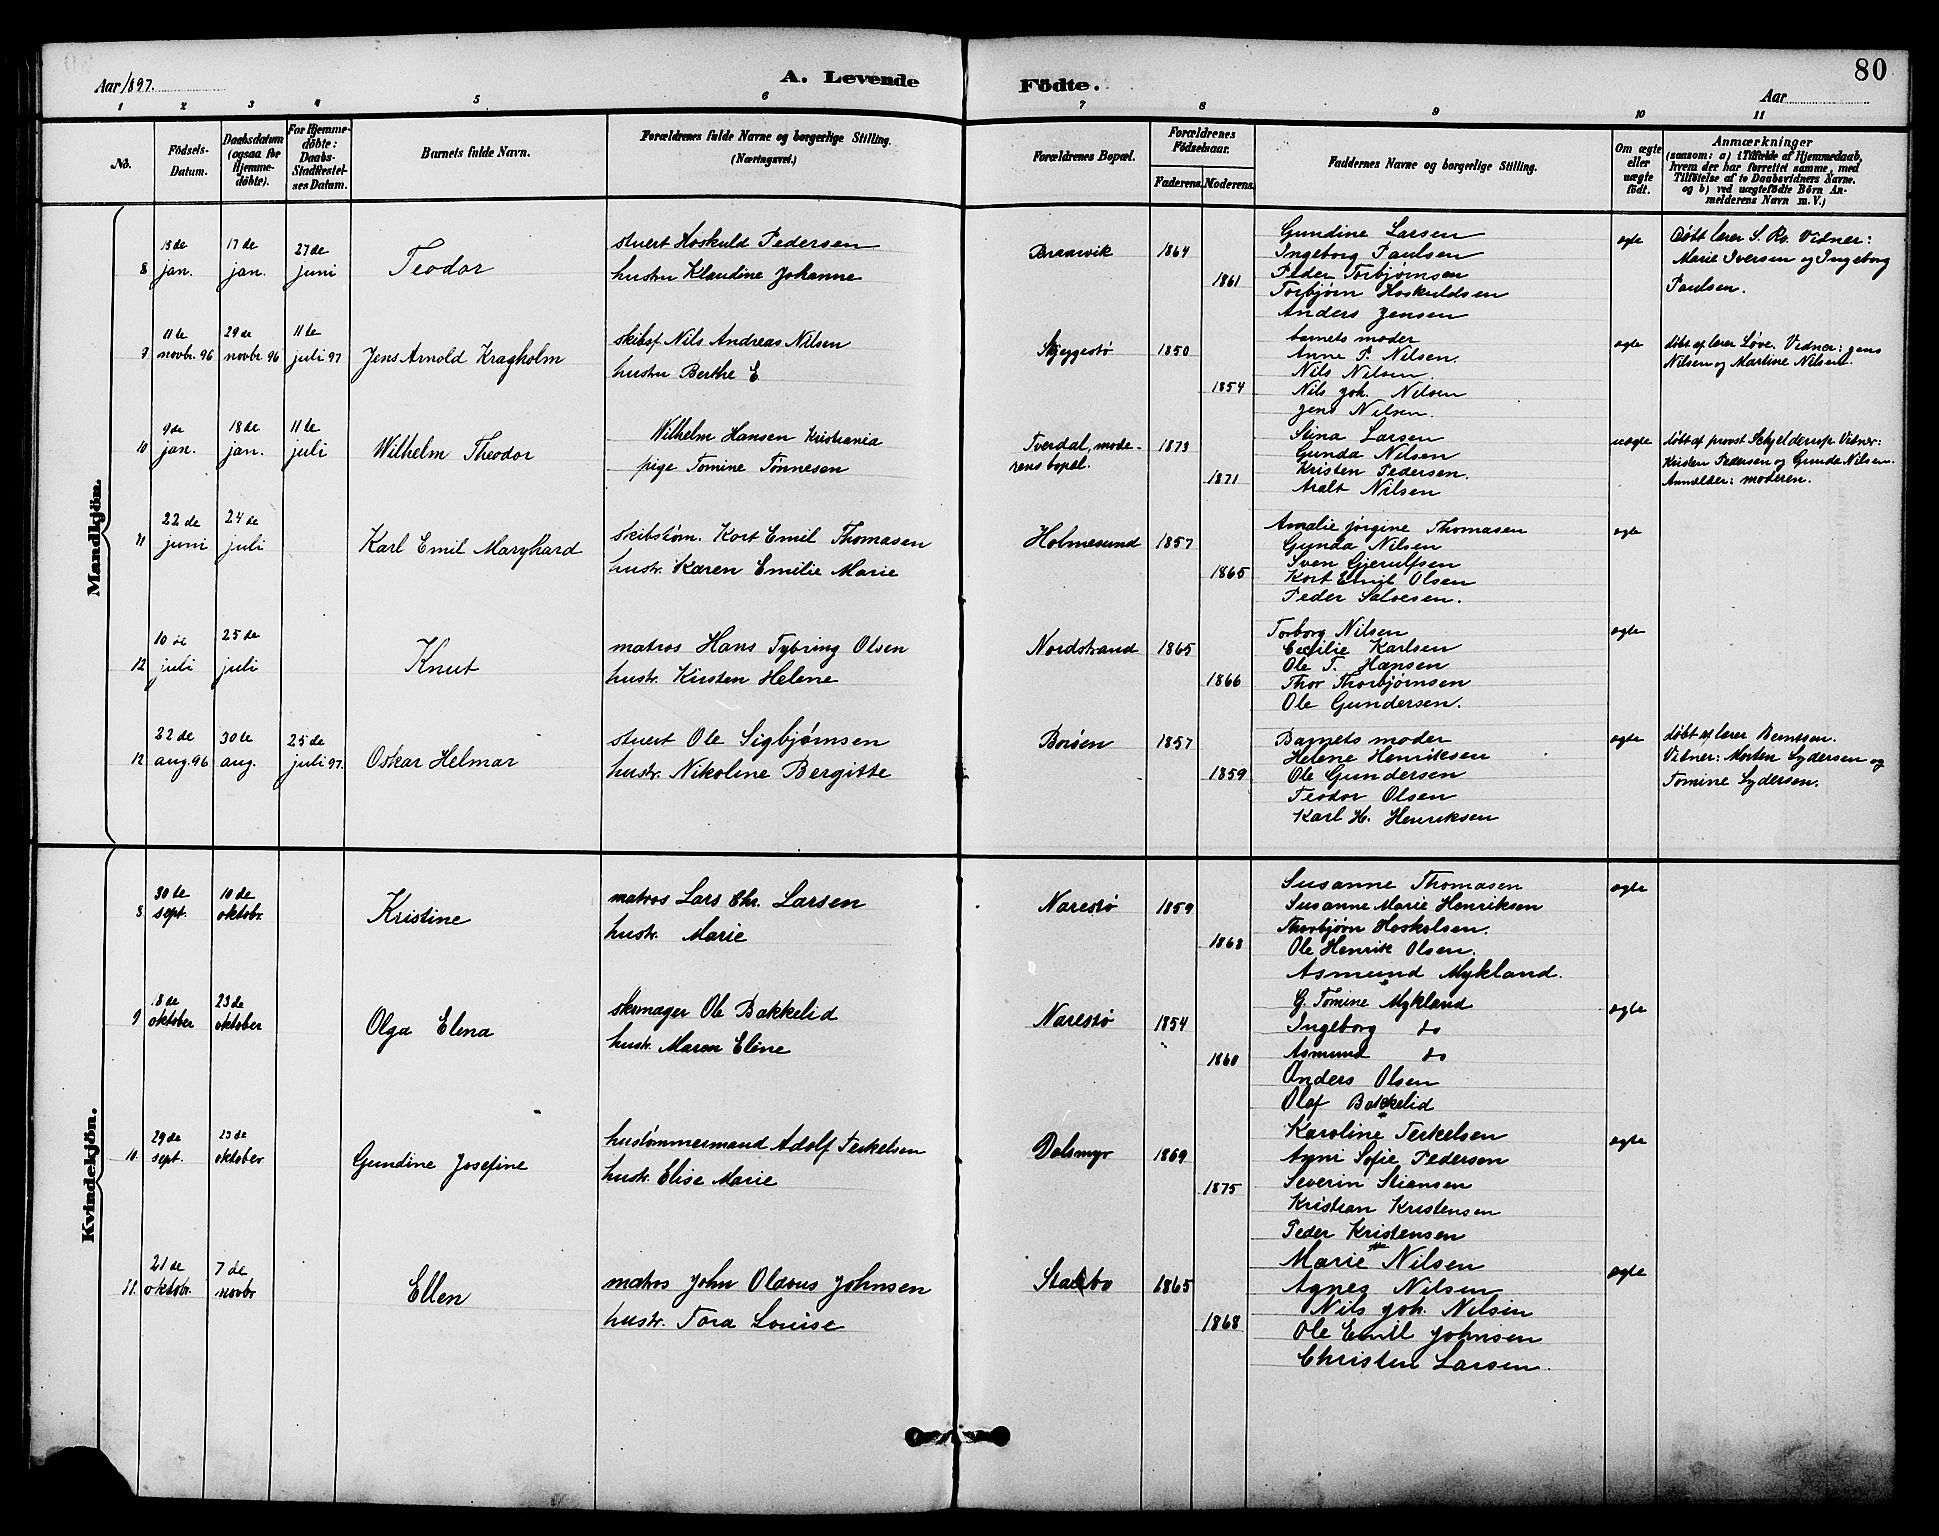 Aar 1897.
A. Levende Födte.
80
Aar
1 2 3 4 5 6 7 8 9 10 11
No.
Födsels-Datum.
Daabsdatum (ogsaa for Hjemmedöbte).
For Hjemmedöbte: Daabs-Stadfæstelses Datum.
Barnets fulde Navn.
Forældrenes fulde Navne og borgerlige Stilling. (Næringsvei.)
Forældrenes Bopæl.
Forældrenes Födselsaar.
Faderens. Moderens.
Faddernes Navne og borgerlige Stilling.
Om ægte eller uægte födt.
Anmærkninger
(saasom: a) i Tilfælde af Hjemmedaab,
hvem der har forrettet samme, med
Tilföielse af to Daabsvidners Navne.
og b) ved uægtefödte Börn An-
melderens Navn m. V.)
Mandkjön.
8 13de jan. 17de jan. 27de juni Teodor
stuert Hoskuld Pedersen
hustru Klaudine Johanne
Braarvik 1864 1861
Gundine Larsen
Ingeborg Paulsen
Peder Torbjørnsen
Torbjørn Hoskuldsen
Anders Jensen
ægte
Døbt lærer S. Ro. Vidner:
Marie Iversen og Ingeborg
Paulsen.
9 11te novbr. 96 29de novbr. 96 11te juli 97 Jens Arnold Kragholm
skibsf. Nils Andreas Nilsen
hustru Berthe E
Skjeggestø 1850 1854
barnets moder
Anne P. Nilsen.
Nils Nilsen.
Nils Joh. Nilsen
Jens Nilsen.
ægte
døbt af lærer Løve. Vidner: Jens
Nilsen og Martine Nilsen.
10 9de jan. 18de jan. 11te juli Wilhelm Theodor
Wilhelm Hansen Kristiania
pige Tomine Tønnesen
Tverdal, mode-
rens bopæl.
1873 1871
Stina Larsen
Gunda Nilsen
Kristen Pedersen.
Aralt Nilsen
uægte
døbt af provst Schjelderup. Vidner:
Kristen Pedersen og Gunda Nilsen.
Anmelder: moderen.
11 22de juni 24de juli Karl Emil Marghard
skibstøm. Kort Emil Thomasen
hustr. Karen Emilie Marie
Holmesund 1857 1865
Amalie Jørgine Thomasen
Gunda Nilsen
Sven Gjerulfsen
Kort Emil Olsen
Peder Salvesen.
ægte
12 10de juli 25de juli Knut
matros Hans Tybring Olsen
hustr. Kirsten Helene
Nordstrand 1865 1866
Torborg Nilsen
Cecilie Karlsen
Ole T. Hansen
Thor Thorbjørnsen
Ole Gundersen.
ægte
12 22de aug. 96 30te aug. 25de juli 97. Oskar Helmar
stuert Ole Sigbjørnsen
hustr. Nikoline Bergitte
Borøen 1857 1859
Barnets moder
Helene Henriksen
Ole Gundersen
Teodor Olsen
Karl H. Henriksen
ægte
døbt af lærer Berntsen.
Vidner: Morten Sydersen og
Tomine Sydersen.
Kvindekjön.
8 30te sept. 10de oktobr. Kristine
matros Lars Chr. Larsen
hustr. Marie
Narestø 1859 1863
Susanne Thomasen
Susanne Marie Henriksen
Thorbjørn Hoskolsen.
Ole Henrik Olsen.
Asmund Mykland.
ægte
9 18de oktober 23de oktober Olga Elena
skomager Ole Bakkelid
hustr. Maren Eline
Narestø 1854 1860
G. Tomine Mykland
Ingeborg do
Asmund do
Anders Olsen
Olaf Bakkelid
ægte
10. 29de sept. 23de oktober Gundine Josefine
hustømmermand Adolf Terkelsen
hustr. Elise Marie
Dalsmyr 1869 1875
Karoline Terkelsen
Anni Sofie Pedersen
Severin Stiansen
Kristian Kristensen
Peder Kristensen
ægte
11. 21de oktobr. 7de novbr Ellen
matros John Olavus Johnsen
hustr. Tora Louise
Stalbo 1865 1868
Marie Nilsen
Agnes Nilsen
Nils Joh. Nilsen
Ole Emil Johnsen
Christen Larsen.
ægte